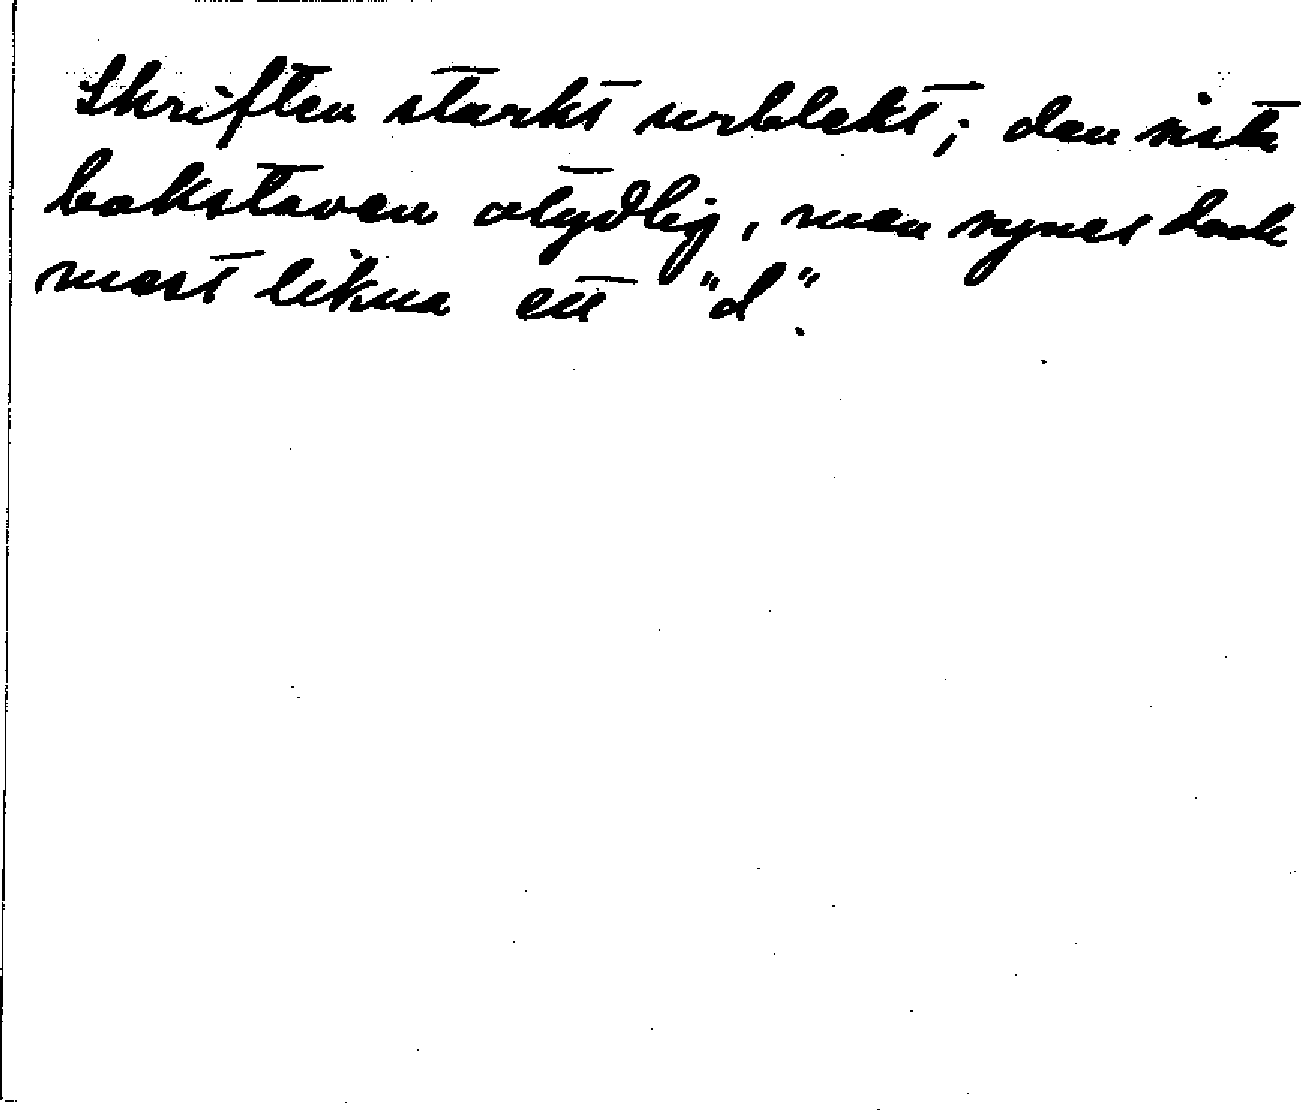 Skriften starkt urblekt; den sista
bokstaven otydlig, men synes dock
mest likna ett "d".